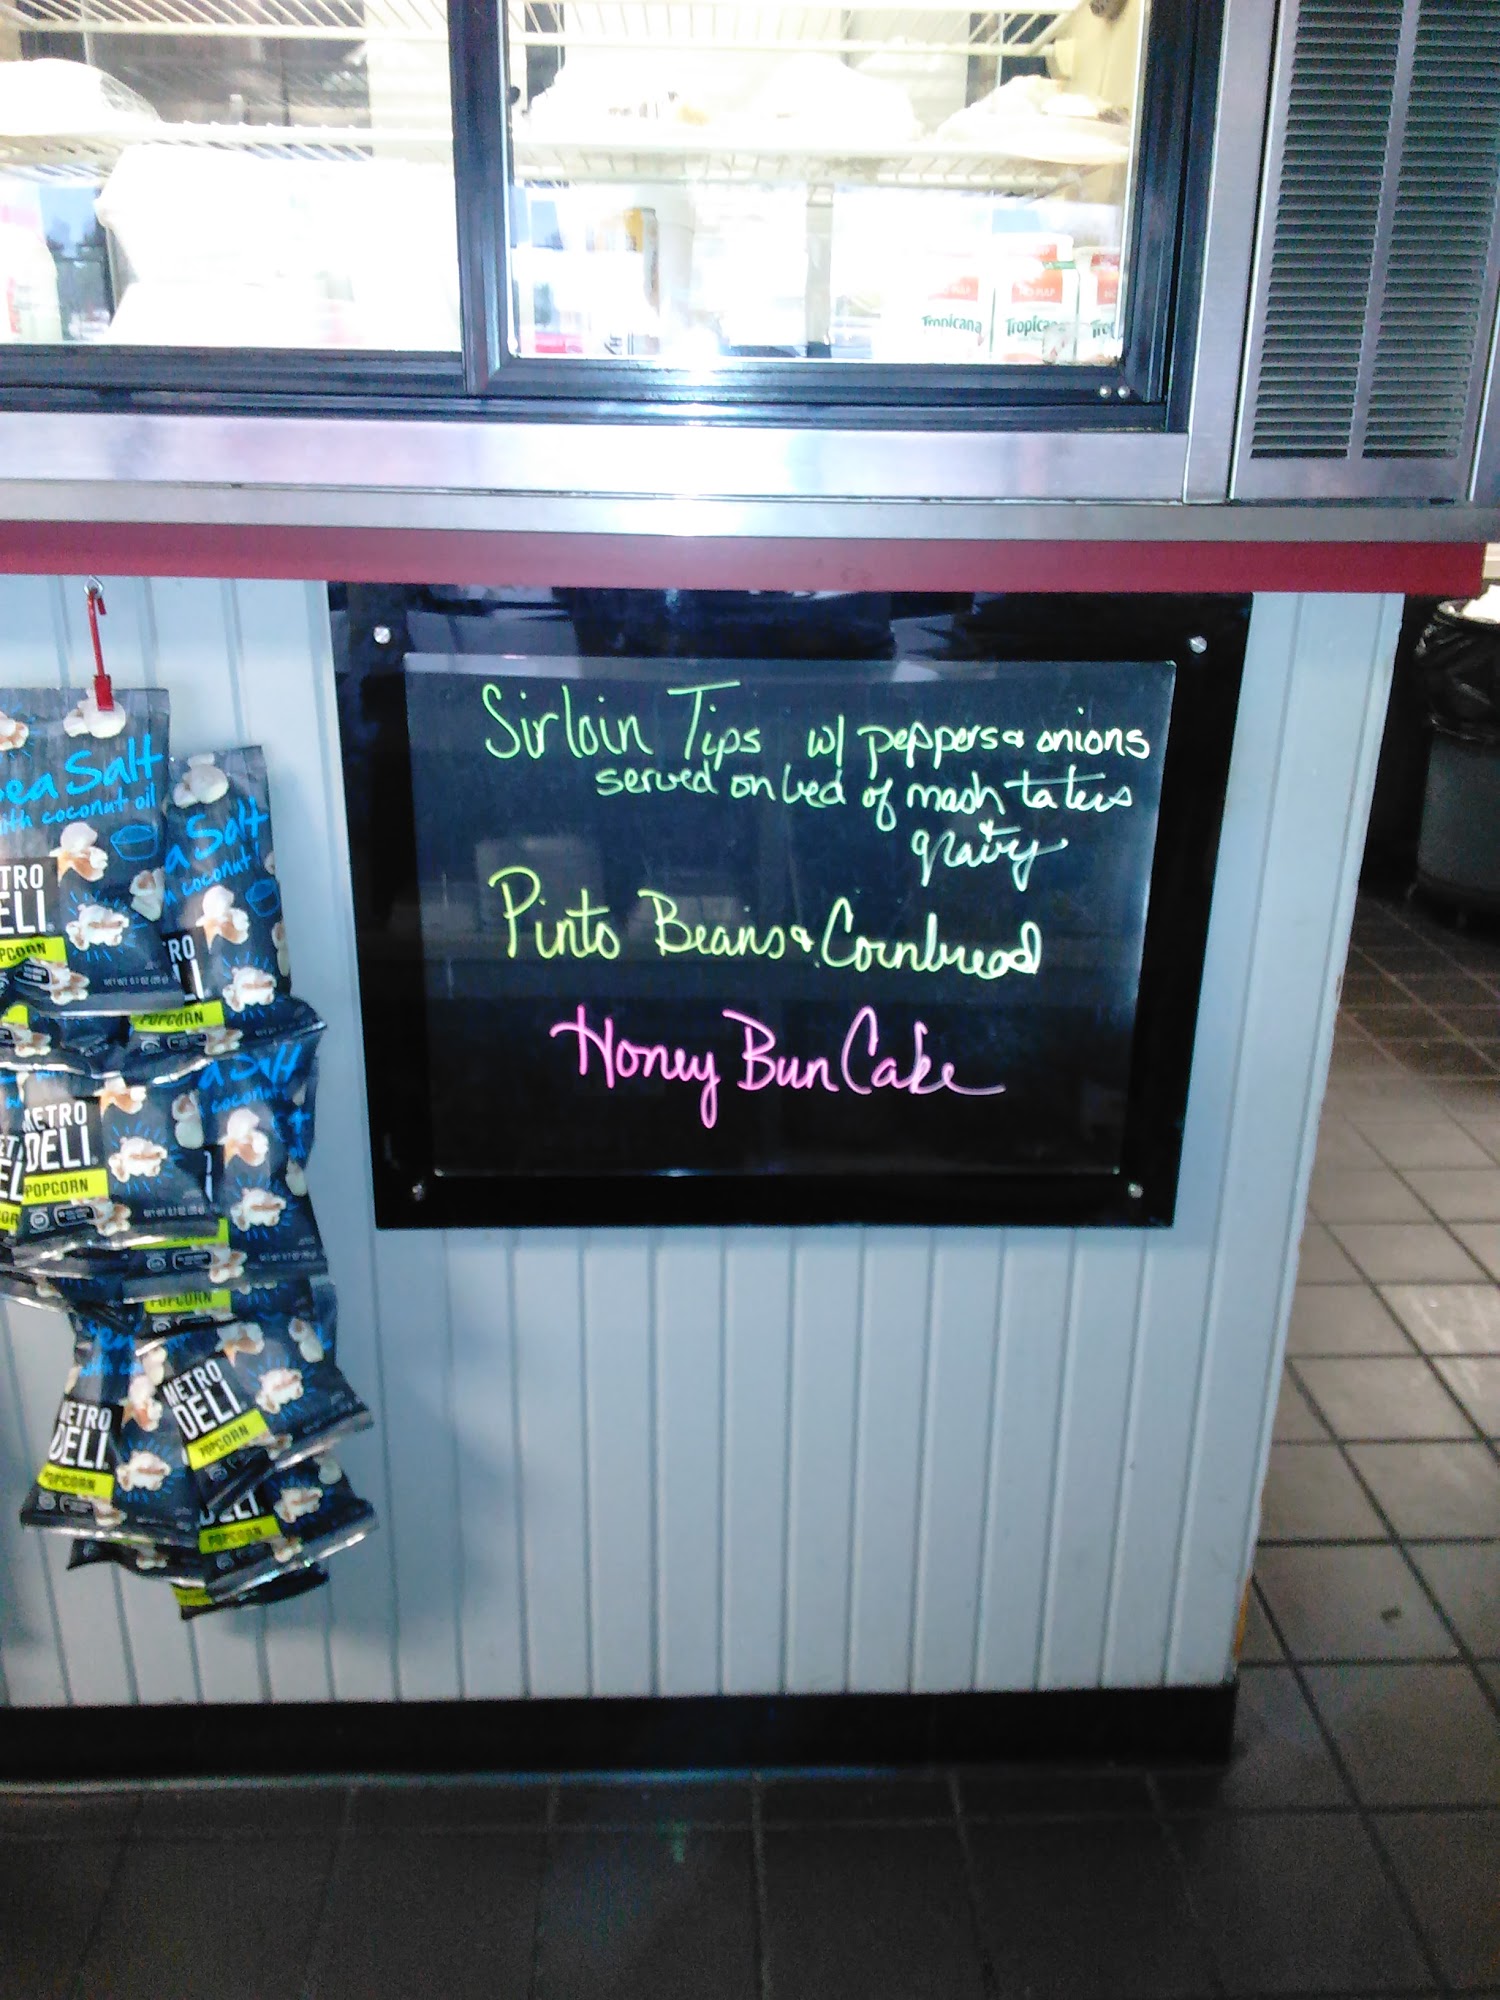 NO PULP
Tropicana
Tropicana
Sirloin Tips w/ peppers & onions
served on bed of mash taters
& gravy
Pinto Beans & Cornbread
Honey Bun Cake
Sea Salt
with coconut oil
METRO
DELI
POPCORN
a Salt
coconut
POPCORN
METRO
DELI
POPCORN
POPCORN
METRO
DELI
POPCORN
METRO
DELI
POPCORN
DELI
POPCORN